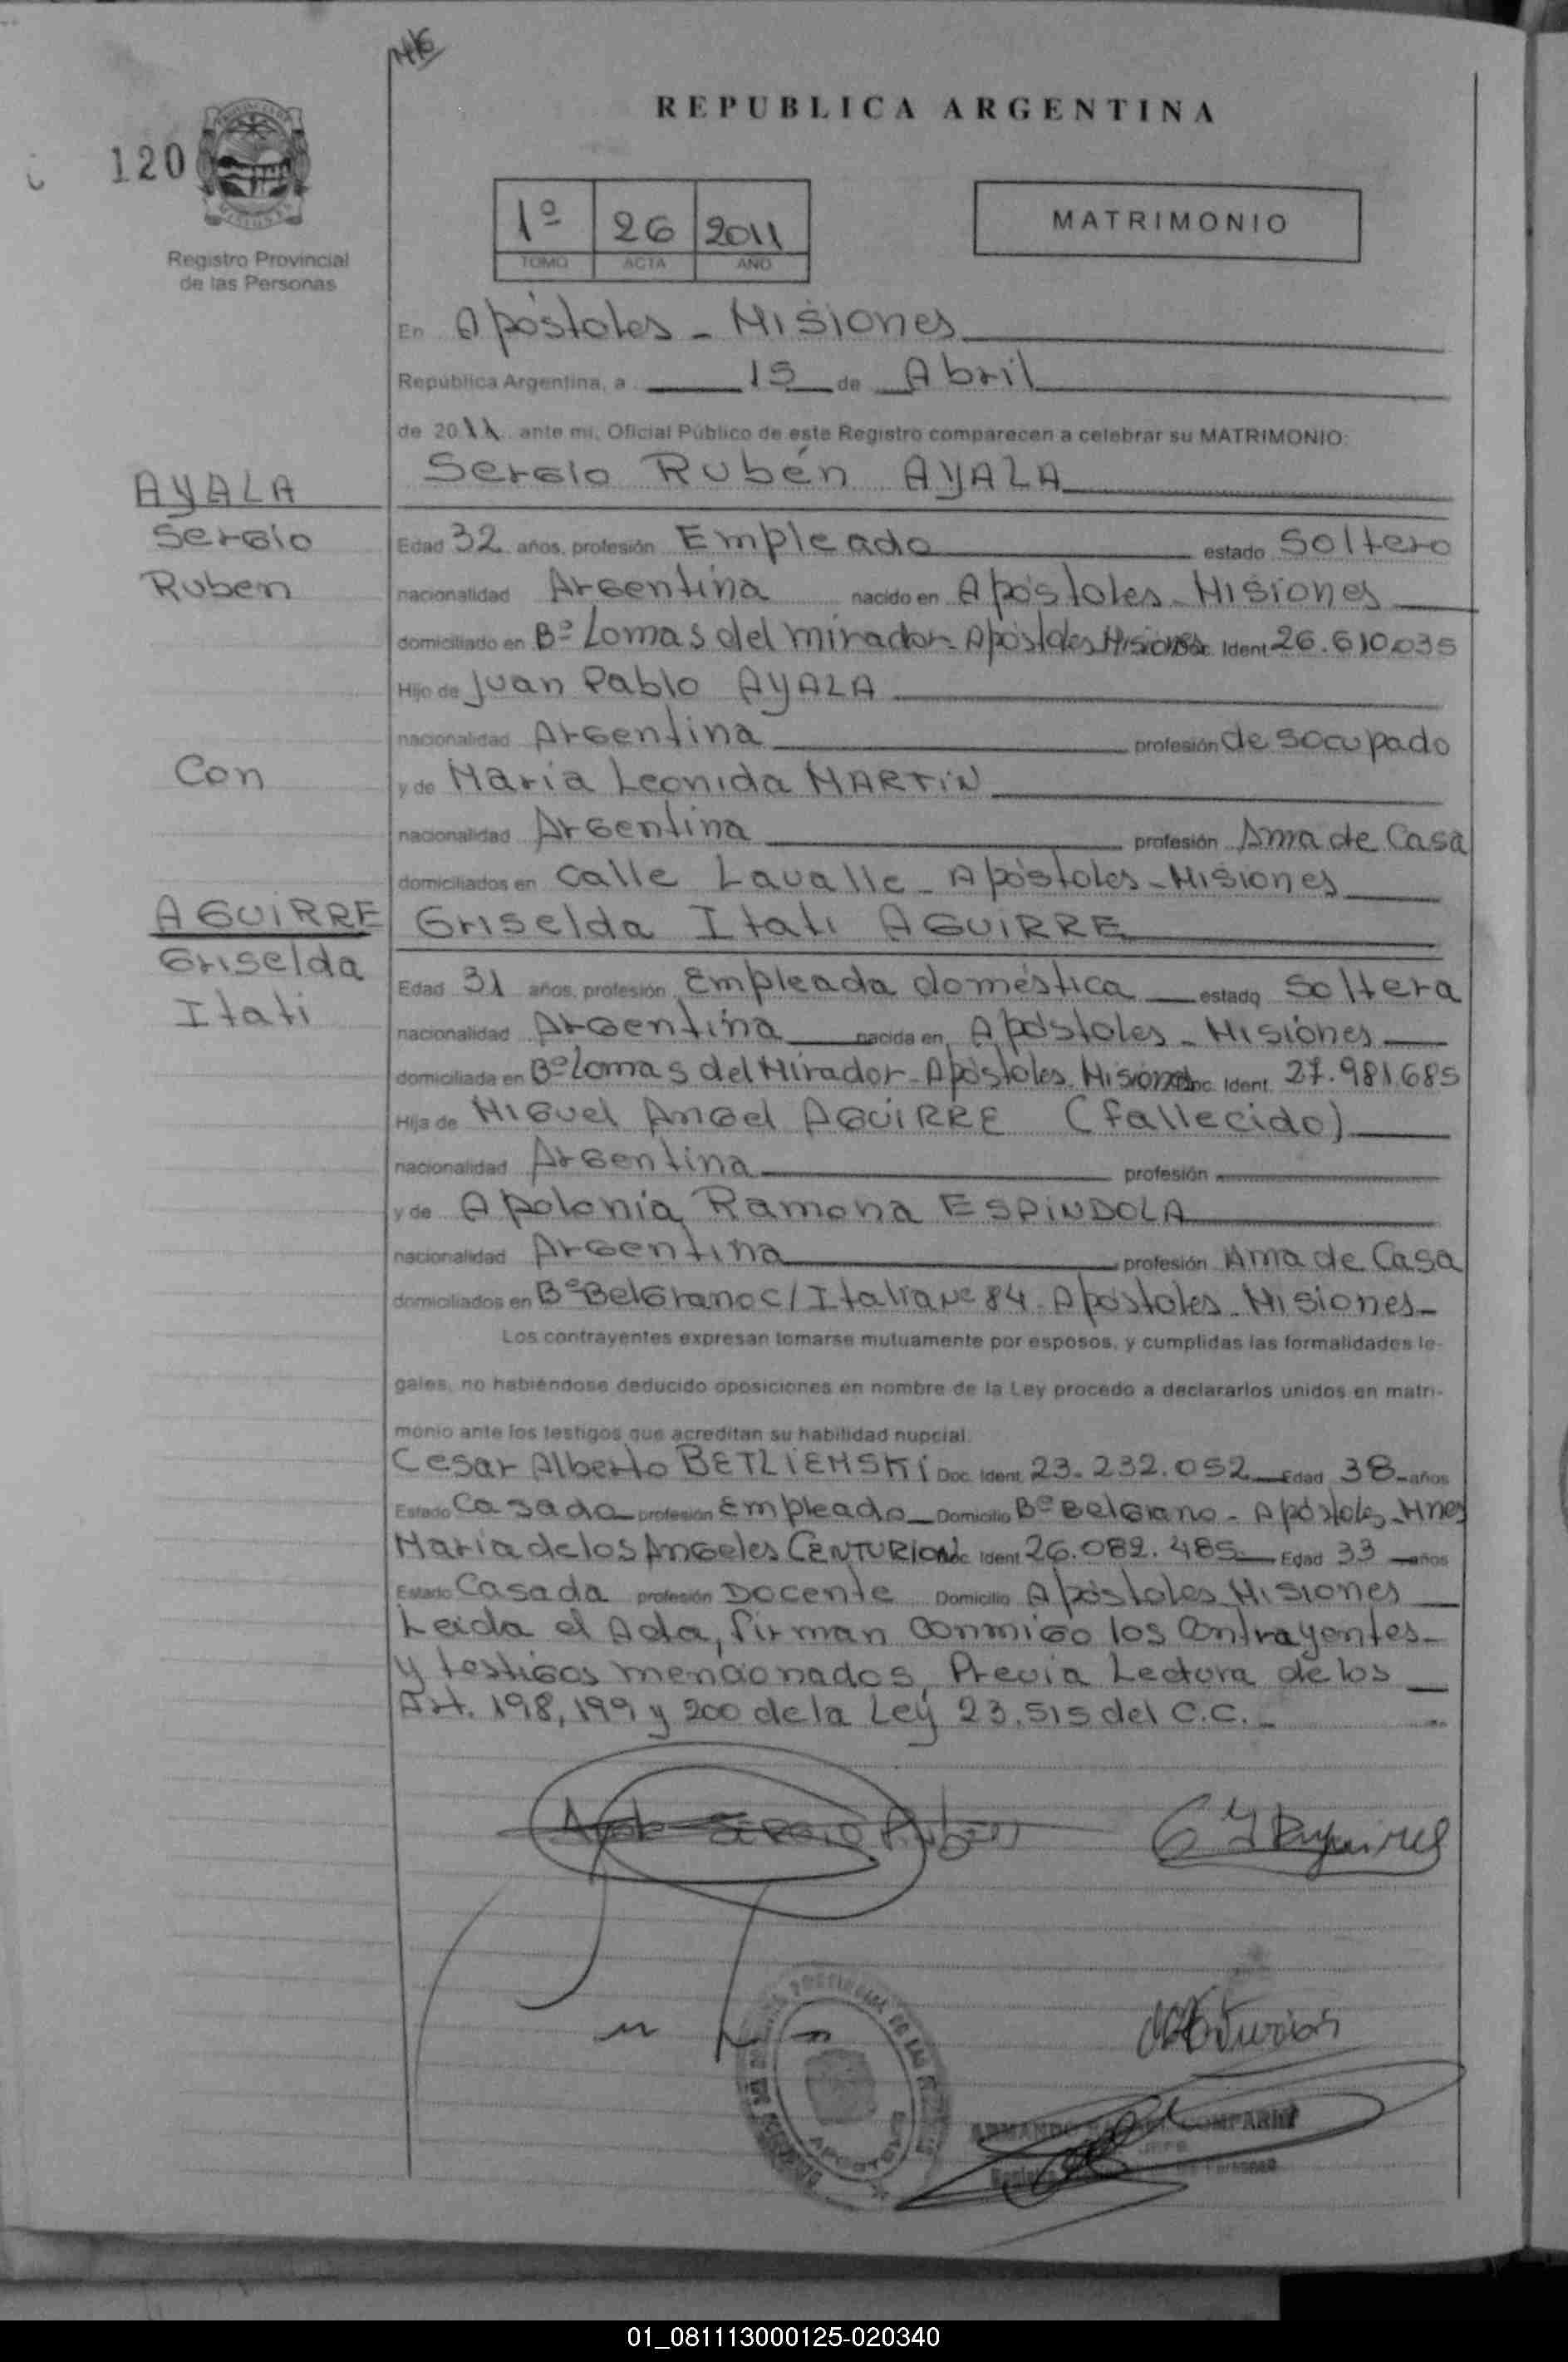 REPUBLICA ARGENTINA
120
1º 26 2011
TOMO ACTA AÑO
MATRIMONIO
Registro Provincial
de las Personas
En Apóstoles - Misiones
República Argentina, a 15 de Abril
de 2011 ante mi, Oficial Público de este Registro comparecen a celebrar su MATRIMONIO:
Sergio Rubén AYALA
AYALA
Sergio
Ruben
Edad 32 años, profesión Empleado estado Soltero
nacionalidad Argentina nacido en Apóstoles - Misiones
domiciliado en Bº Lomas del mirador - Apóstoles Misiones Doc. Ident 26.610.035
Hijo de Juan Pablo AYALA
nacionalidad Argentina profesión desocupado
Con
y de María Leonida MARTIN
nacionalidad Argentina profesión Ama de Casa
domiciliados en Calle Lavalle - Apóstoles - Misiones
AGUIRRE
Griselda
Itati
Griselda Itati AGUIRRE
Edad 31 años, profesión Empleada doméstica estado Soltera
nacionalidad Argentina nacida en Apóstoles - Misiones
domiciliada en Bº Lomas del Mirador - Apóstoles Misiones Doc. Ident. 27.981.685
Hija de Miguel Angel AGUIRRE (fallecido)
nacionalidad Argentina profesión
y de Apolonia Ramona ESPINDOLA
nacionalidad Argentina profesión Ama de Casa
domiciliados en Bº Belgrano c/ Italia Nº 84 - Apóstoles - Misiones
Los contrayentes expresan tomarse mutuamente por esposos, y cumplidas las formalidades le-
gales, no habiéndose deducido oposiciones en nombre de la Ley procedo a declararlos unidos en matri-
monio ante los testigos que acreditan su habilidad nupcial.
Cesar Alberto BETLIEMSKI Doc. Ident. 23.232.052 Edad 38 años
Estado Casado profesión Empleado Domicilio Bº Belgrano - Apóstoles - Mnes
María de los Angeles CENTURION Doc. Ident 26.082.485 Edad 33 años
Estado Casada profesión Docente Domicilio Apóstoles Misiones
Leida el Acta, firman conmigo los Contrayentes
y testigos mencionados, Previa Lectura de los
Art. 198, 199 y 200 de la Ley 23.515 del C.C.
Ayala Sergio Ruben
G I Aguirre
01_081113000125-020340